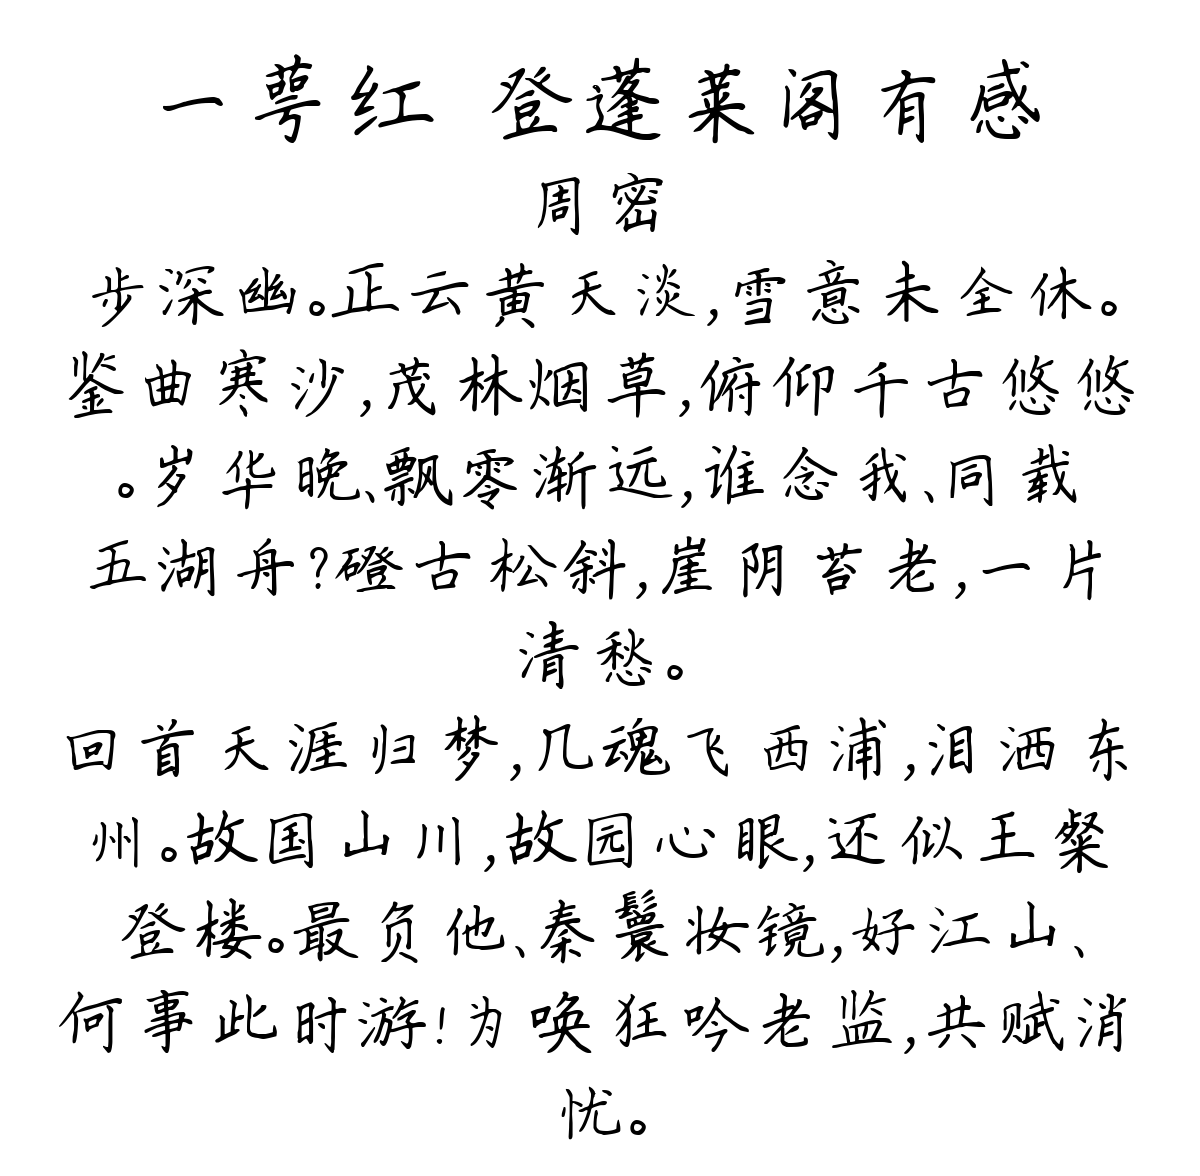 一萼红 登蓬莱阁有感
周密
步深幽。正云黄天淡,雪意未全休。
鉴曲寒沙,茂林烟草,俯仰千古悠悠
。岁华晚、飘零渐远,谁念我、同载
五湖舟?磴古松斜,崖阴苔老,一片
清愁。
回首天涯归梦,几魂飞西浦,泪洒东
州。故国山川,故园心眼,还似王粲
登楼。最负他、秦鬟妆镜,好江山、
何事此时游!为唤狂吟老监,共赋消
忧。